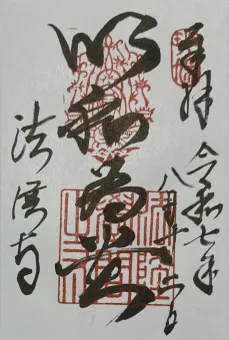 奉拝
令和七年
八月
以和為貴
法隆寺